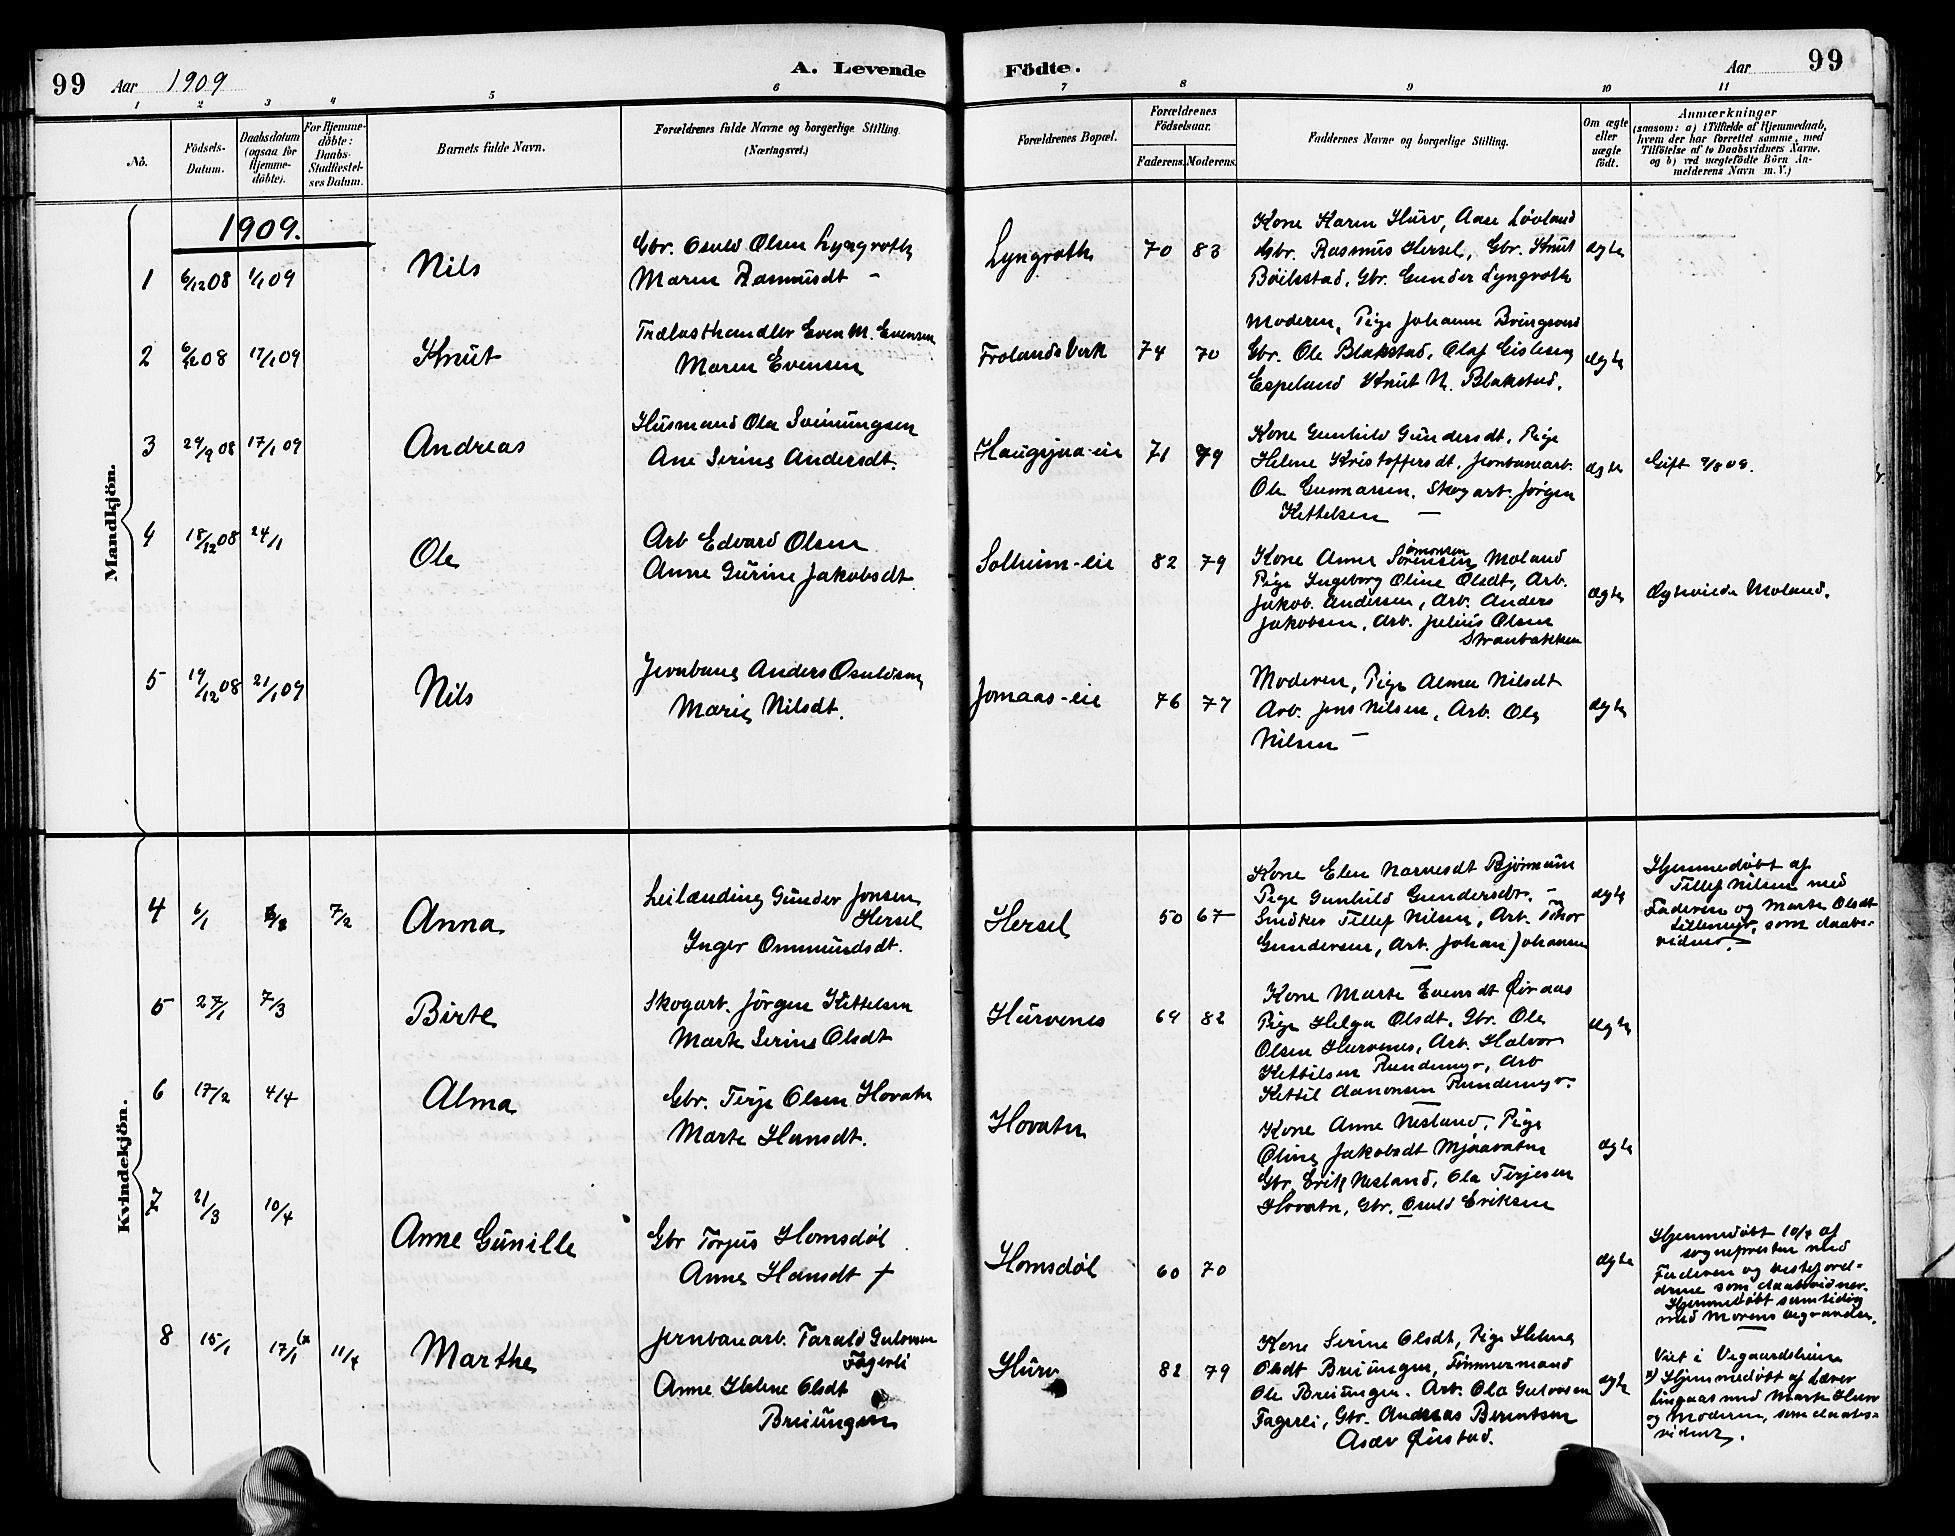 99 Aar 1909 A. Levende
1 2 3 4 5 6
No.
Födsels-
Datum.
Daabsdatum
(ogsaa for
Hjemme-
döbte).
For Hjemme-
döbte:
Daabs-
Stadfæstel-
ses Datum.
Barnets fulde Navn.
Forældrenes fulde Navne og borgerlige Stilling.
(Næringsvei.)
Födte. Aar 99
7 8 9 10 11
Forældrenes Bopæl.
Forældrenes
Födselsaar.
Faderens. Moderens.
Faddernes Navne og borgerlige Stilling.
Om ægte
eller
uægte
födt.
Anmærkninger
(saasom: a) i Tilfælde af Hjemmedaab,
hvem der har forrettet samme, med
Tilföielse af to Daabsvidners Navne,
og b) ved uægtefödte Börn An-
melderens Navn m. V.)
Mandkjön.
1909.
1 6/12 08 1/1 09 Nils
Gbr. Osuld Olsen Lyngroth
Maren Rasmusdt -
Lyngroth 70 83
Kone Karen Hurv, Aase Løvland
Gbr. Rasmus Hersel, Gbr. Knut
Böilestad, Gbr. Gunder Lyngroth
ægte
2 08 17/1 09 Knut
Trælasthandler Even M. Evensen
Maren Evensen
Frolands Verk 74 70
Moderen, Pige Johanne Bringsvord
Gbr. Ole Blakstad, Olaf Gislesen
Espeland Knut N. Blakstad.
ægte
3 29/9 08 17/1 09 Andreas
Husmand Ole Sveinungsen
Ane Serine Andersdt.
Haugsjaa-eie 71 79
Kone Gunhild Gundersdt, Pige
Helene Kristoffersdt, Jernbanearb.
Ole Gunnarsen, Skogarb. Jørgen
Kettelsen —
ægte
Gift 9/8 09.
4 18/12 08 24/1 Ole
Arb Edvard Olsen
Anne Gurine Jakobsdt
Solheim-eie 82 79
Kone Anne Sørensen Moland
Pige Ingeborg Oline Olsdt, Arb.
Jakob Andersen, Arb. Anders
Jakobsen, Arb. Julius Olsen
Stranbakken
ægte
Ægteviede Moland.
5 19/12 08 21/1 09 Nils
Jernbane Anders Osuldsen
Marie Nilsdt.
Jomaas-eie 76 77
Moderen, Pige Alma Nilsdt
Arb. Jens Nilsen, Arb. Ole
Nilsen —
ægte
Kvindekjön.
4 6/1 7/2 Anna
Leilænding Gunder Jonsen
Hersel
Inger Ommundsdt.
Hersel 50 67
Kone Elen Narvesdt Bjørmein
Pige Gunhild Gundersdtr. -
Snedker Tellef Nilsen, Arb. Thor
Gundersen, Arb. Johan Johansen
ægte
Hjemmedøbt af
Tellef Nilsen med
Faderen og Marte Olsdt
Lillemyr, som daabs-
vidner.
5 27/1 7/3 Birte
Skogarb. Jörgen Kettelsen
Marte Serine Olsdt
Hurvenes 69 82
Kone Marte Evensdt Øiraas
Pige Helga Olsdt, Gbr. Ole
Olsen Hurvenes, Arb. Halvor
Kettilsen Rundemyr, Arb
Kettil Aanonsen Rundemyr.
ægte
6 17/2 4/4 Alma
Gbr. Terje Olsen Hovatn
Marte Hansdt.
Hovatn
Kone Anne Nesland, Pige
Oline Jakobsdt Mjaavatn
Gbr. Erik Nesland, Ole Terjesen
Hovatn, Gbr. Osuld Eriksen
ægte
7 21/3 10/4 Anne Gunille
Gbr Torjus Homsdøl
Anne Hansdt +
Homsdøl 60 70
ægte
Hjemmedøbt 10/4 af
sognepresten med
Faderen og
som daabsvidner.
Hjemmedøbt samtidig
med Morens begravelse.
8 15/1 17/1 11/4 Marthe
Jernbanearb. Tarald Gulovsen
Fagerli
Anne Helene Olsdt
Breiungen
Hurv 82 79
Kone Serine Olsdt, Pige Helene
Olsdt Breiungen, Tømmermand
Ole Breiungen. Arb. Ole Gulovsen
Fagerli, Gbr. Andreas Berntsen
Asdøv Øiestad.
ægte
Viet i Vegaardsheien
Hjemmedøbt af Lærer
Lingaas med Marte Hurv
og Moderen, som daabs-
vidner.